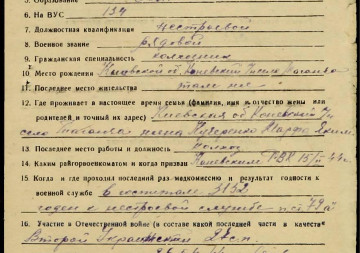 5. Образование
6. На ВУС " 134
7. Должностная квалификация нестроевой
8. Военное звание рядовой
9. Гражданская специальность колхозник
10 Место рождения Киевской об. Каневский
11. Последнее место жительства там же
12. Где проживает в настоящее время семья (фамилия, имя и отчество жены или
родителей и точный их адрес) Киевская об Каневский
село жена Марфа
13. Последнее место работы и должность колхоз
14. Каким райгорвоенкоматом и когда призван Каневским РВК 15/II 44 г.
15. Когда и где проходил последний раз медкомиссию и результат годности к
военной службе В госпитале 3152
годен к нестроевой службе
16. Участие в Отечественной войне (и составе какой последней части и качестве
Второй Украинский